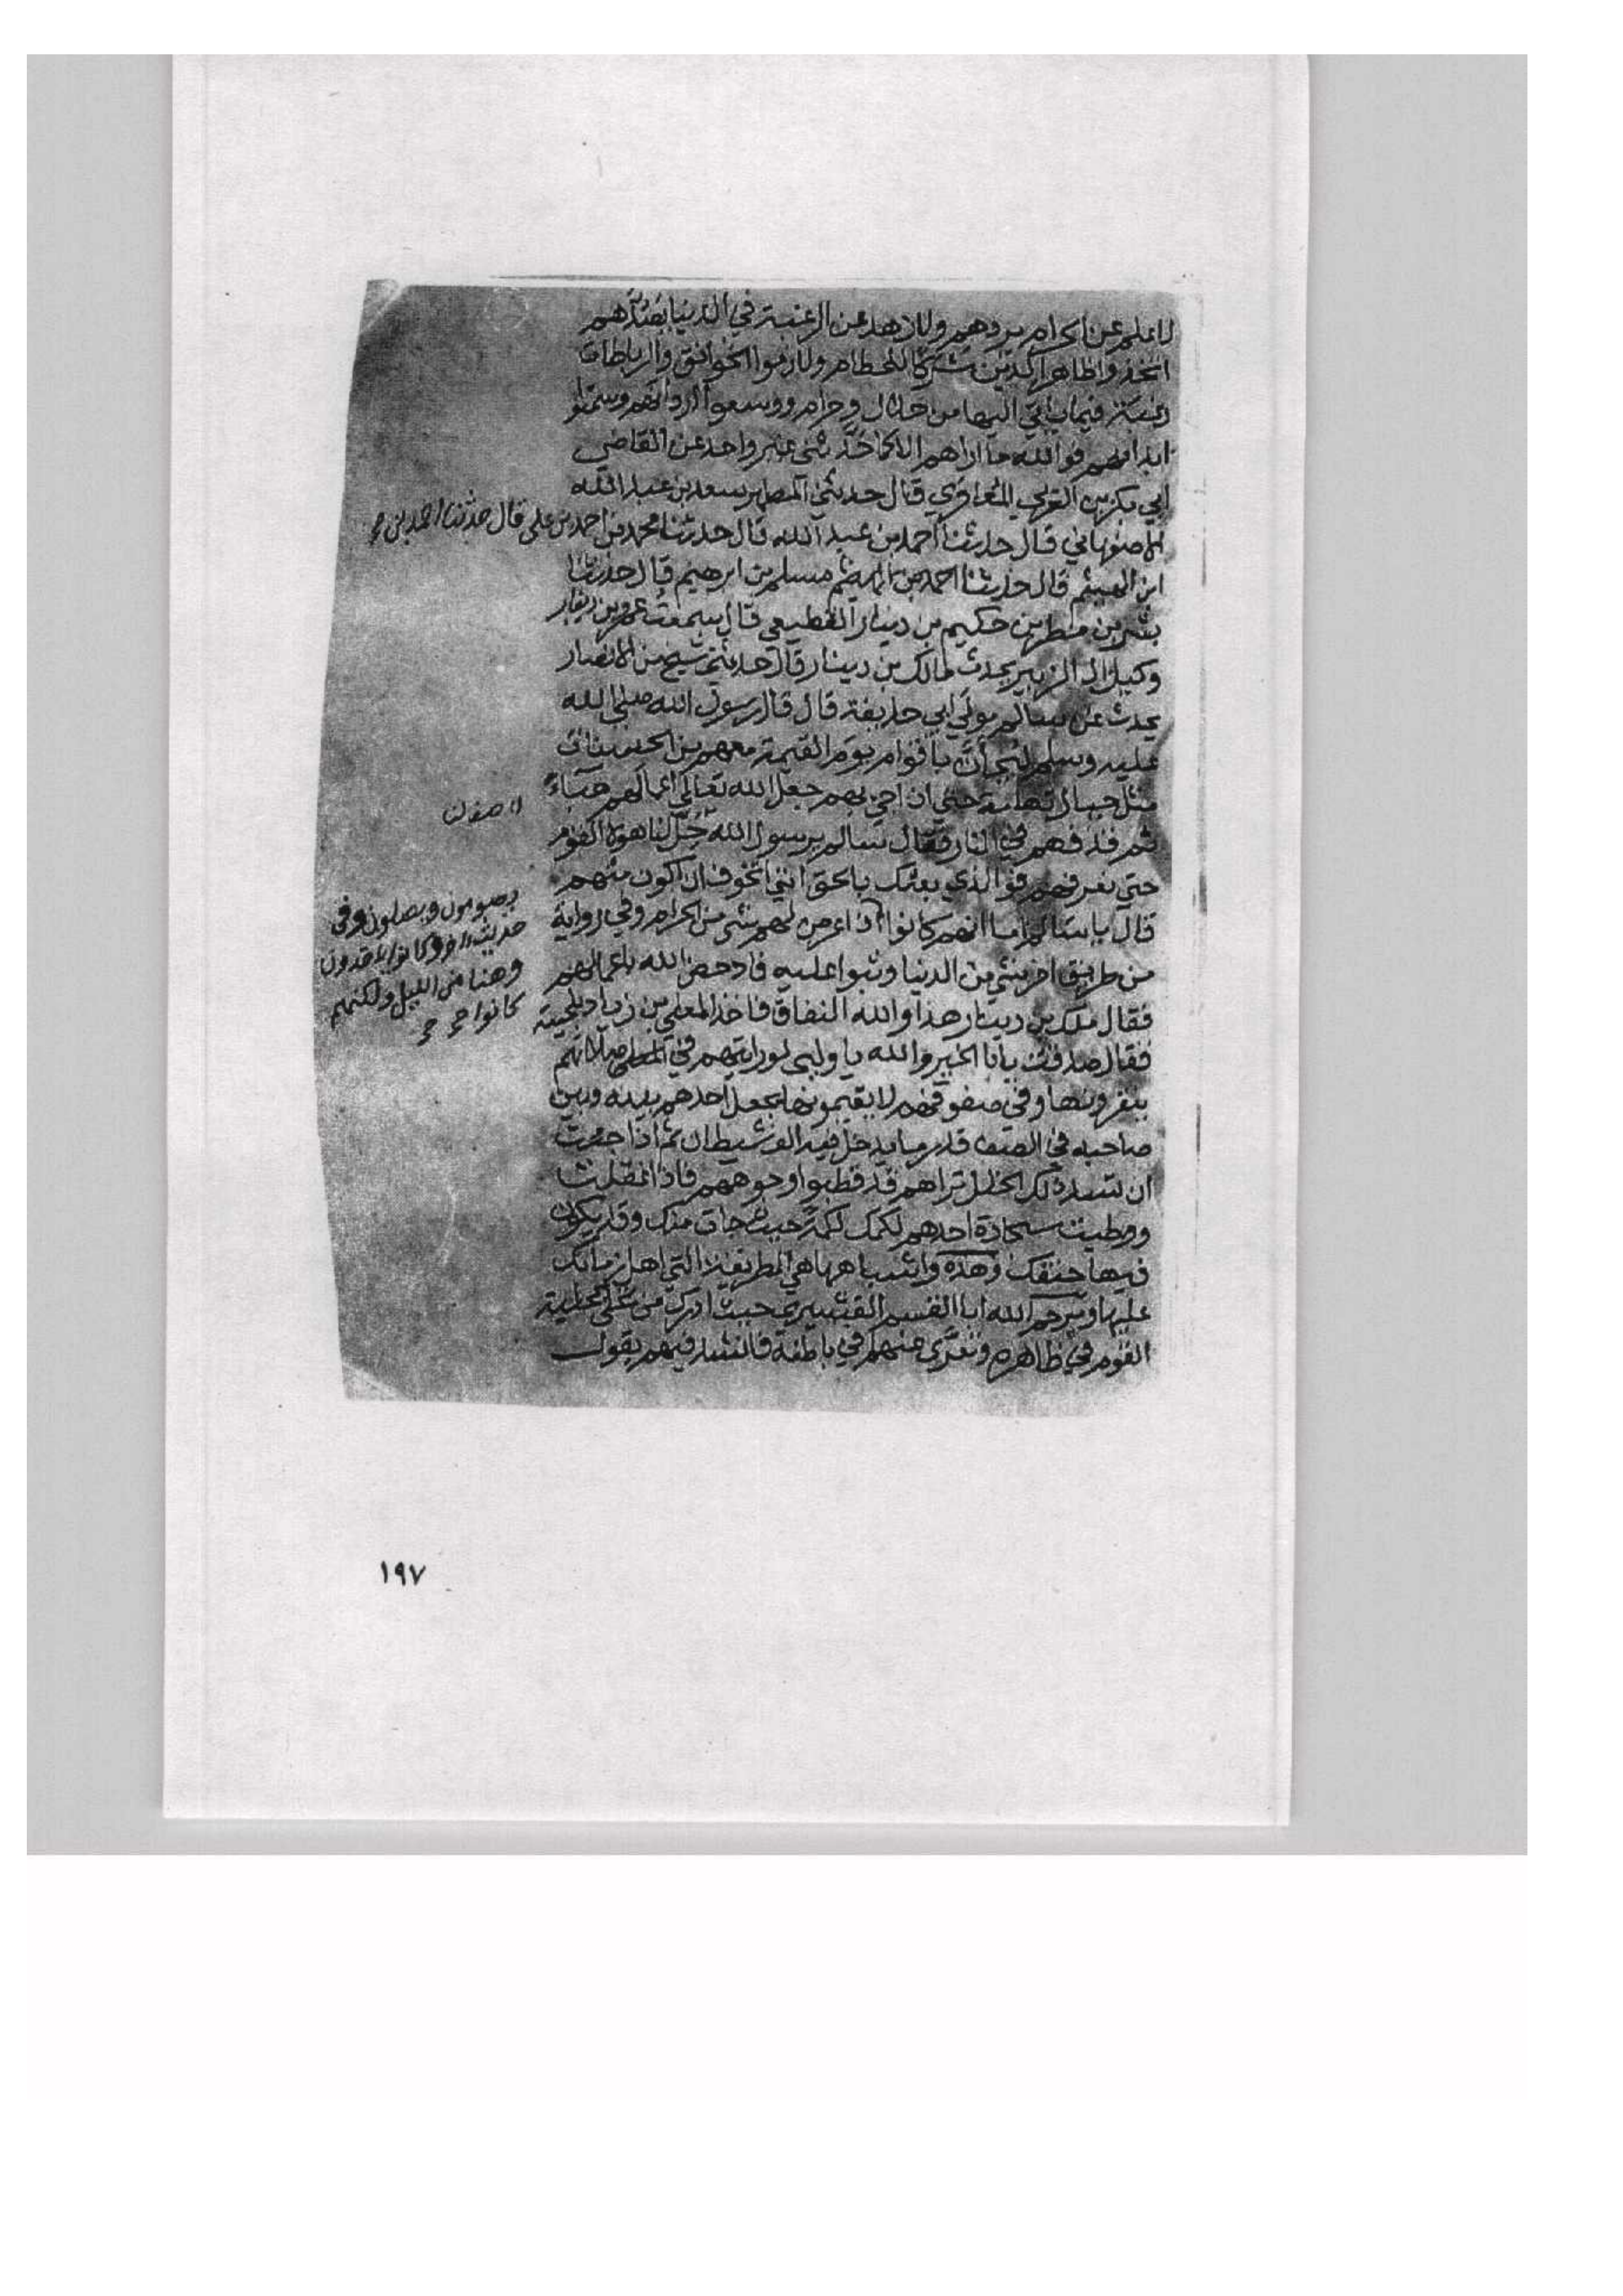 لا علم عن الحرام يردهم ولا زهد عن الرغبة في الدنيا يصدهم
اتخذوا ظاهر الدين شركا للحطام ولازموا الخوانق والرباطات
رغبة فيما ياتي اليها من حلال وحرام ووسعوا اردانهم وسمنوا
ابدانهم فوالله ما اراهم الا كما حدثني غير واحد عن القاضي
ابي بكر بن العربي المعافري قال حدثني المطهر سعد بن عبد الله
الاصفهاني قال حدثنا احمد بن عبد الله قال حدثنا محمد بن احمد بن علي قال حدثنا احمد بن
ابن الهيثم قال حدثنا مسلم بن ابرهيم قال حدثنا
بشر بن مطهر بن حكيم بن دينار القطيعي قال سمعت عمرو بن دينار
وكيل ال الزبير يحدث مالك بن دينار قال حدثني شيخ من الانصار
يحدث عن سالم مولى ابي حذيفة قال قال رسول الله صلى الله
عليه وسلم ليجاءن باقوام يوم القيمة معهم من الحسنات
مثل جبال تهامة حتى اذا جي بهم جعل الله تعالى اعمالهم هباء
ثم قذفهم في النار فقال سالم يرسول الله حل لنا هولا القوم
حتى نعرفهم فوالذي بعثك بالحق انني اتخوف ان اكون منهم
قال يا سالم اما انهم كانوا اذا عرض لهم شي من الحرام وفي رواية
من طريق اخر شي من الدنيا وثبوا عليه فادحض الله اعمالهم
فقال ملك بن دينار هذا والله النفاق فاخذ المعلى بن زياد بلحيته
فقال صدقت يابا الخير والله يا وليي لو رايتهم في صلاتهم
ينقرونها وفي صفوفهم لا يقيمونها يجعل احدهم بينه وبين
صاحبه في الصف قدر ما يدخل فيه الف شيطان ثم اذا جئت
ان تسد ذلك الخلل تراهم قد قطبوا وجوههم فاذا
ووطيت سجادة احدهم لكمك لكمة حيث جات منك وقد يكون
فيها حتفك وهذه واشباهها هي الطريقة التي اهل زمانك
عليها ويرحم الله ابا القسم القشيري حيث ادرك من تحلى بحلية
القوم في ظاهره وتعرى منهم في باطنه فانشد فيهم يقول
يصومون ويصلون وفي
حديث اخر وكانوا ياخذون
وهنا من الليل ولكنهم
كانوا
١٩٧